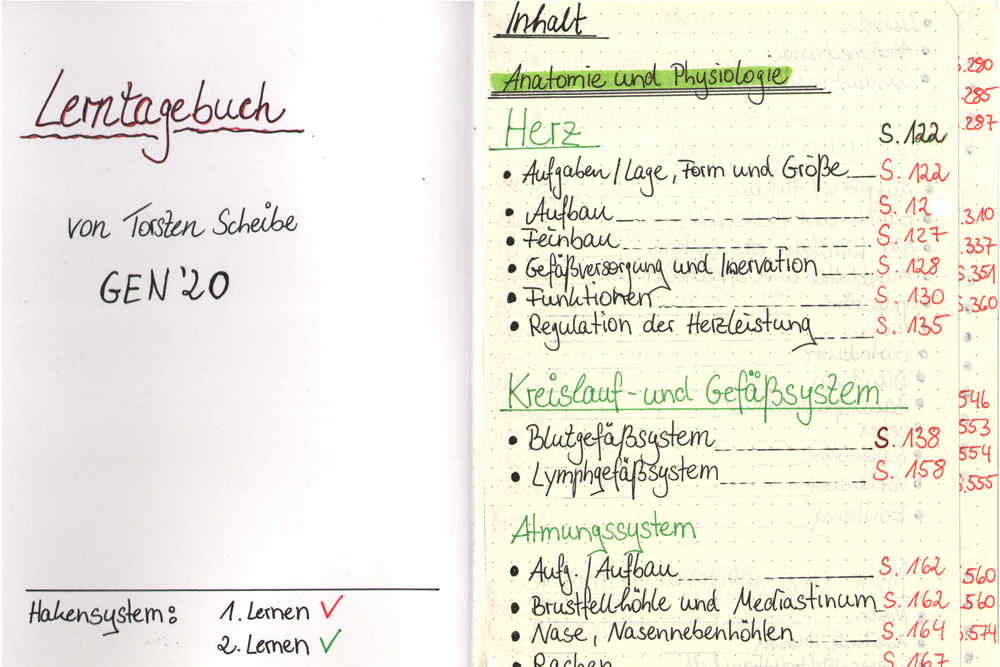 Lerntagebuch
von Torsten Scheibe
GEN '20
Hakensystem:
1. Lernen ✓
2. Lernen ✓
Inhalt
Anatomie und Physiologie
Herz S. 122
• Aufgaben / Lage, Form und Größe S. 122
• Aufbau S. 12
• Feinbau S. 127
• Gefäßversorgung und Inervation S. 128
• Funktionen S. 130
• Regulation der Herzleistung S. 135
Kreislauf- und Gefäßsystem
• Blutgefäßsystem S. 138
• Lymphgefäßsystem S. 158
Atmungssystem
• Aufg. / Aufbau S. 162
• Brustfellhöhle und Mediastinum S. 162
• Nase, Nasennebenhöhlen S. 164
• Rachen S. 167
S. 290
285
297
310
337
S. 351
S. 360
546
553
554
S. 555
560
560
S. 574